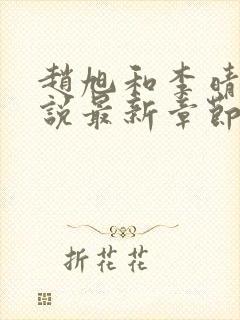 趙旭和李晴
說最新章節
折花花